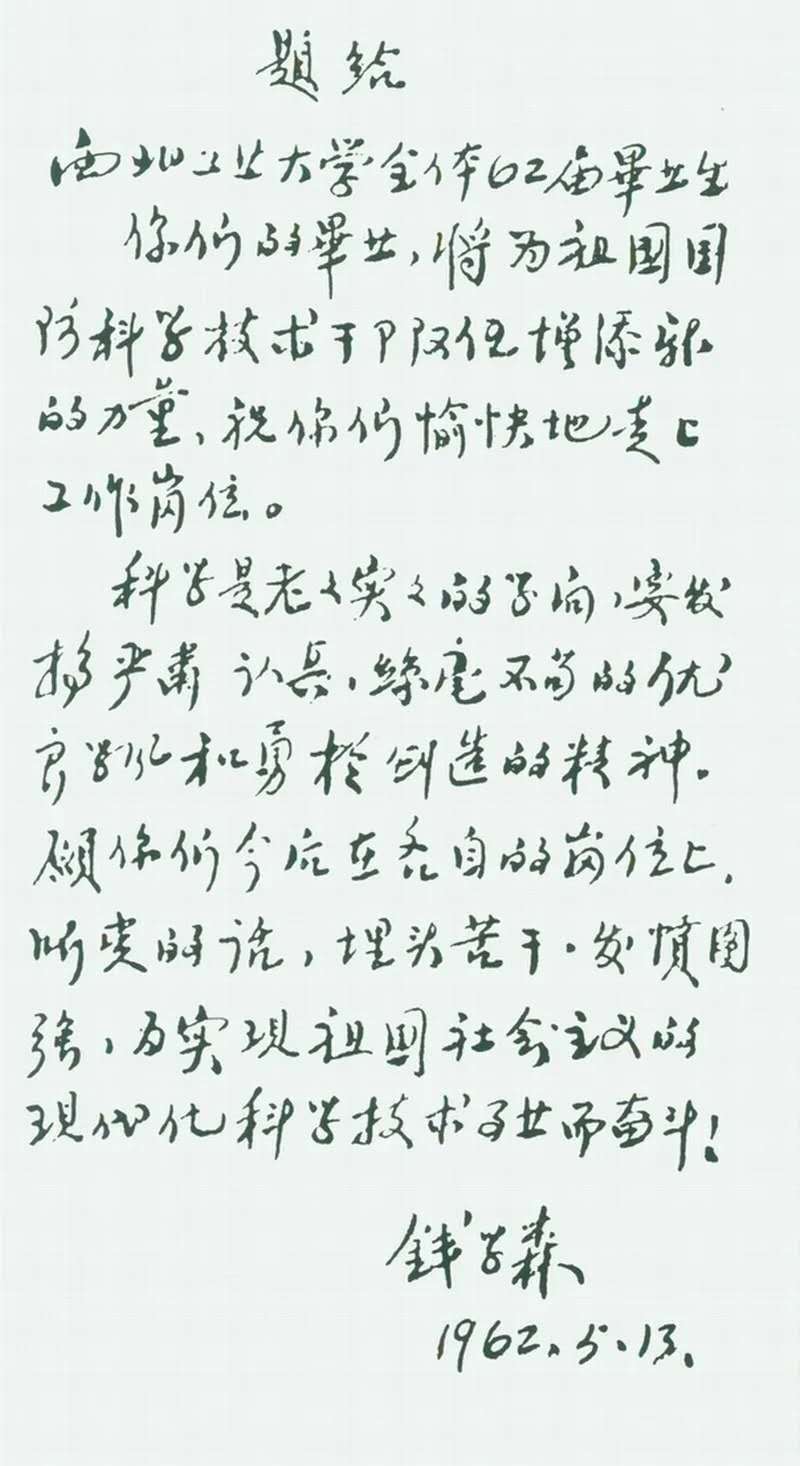 题给
西北工业大学全体62届畢业生
你们的畢业，将为祖国国
防科学技术干部队伍增添新
的力量、祝你们愉快地走上
工作岗位。
科学是老老实实的学问，要发
扬严肃认真，丝毫不苟的优
良学风和勇於创造的精神。
愿你们今后在各自的岗位上，
听党的话，埋头苦干、发愤图
强，为实现祖国社会主义的
现代化科学技术事业而奋斗！
钱学森
1962.5.13.